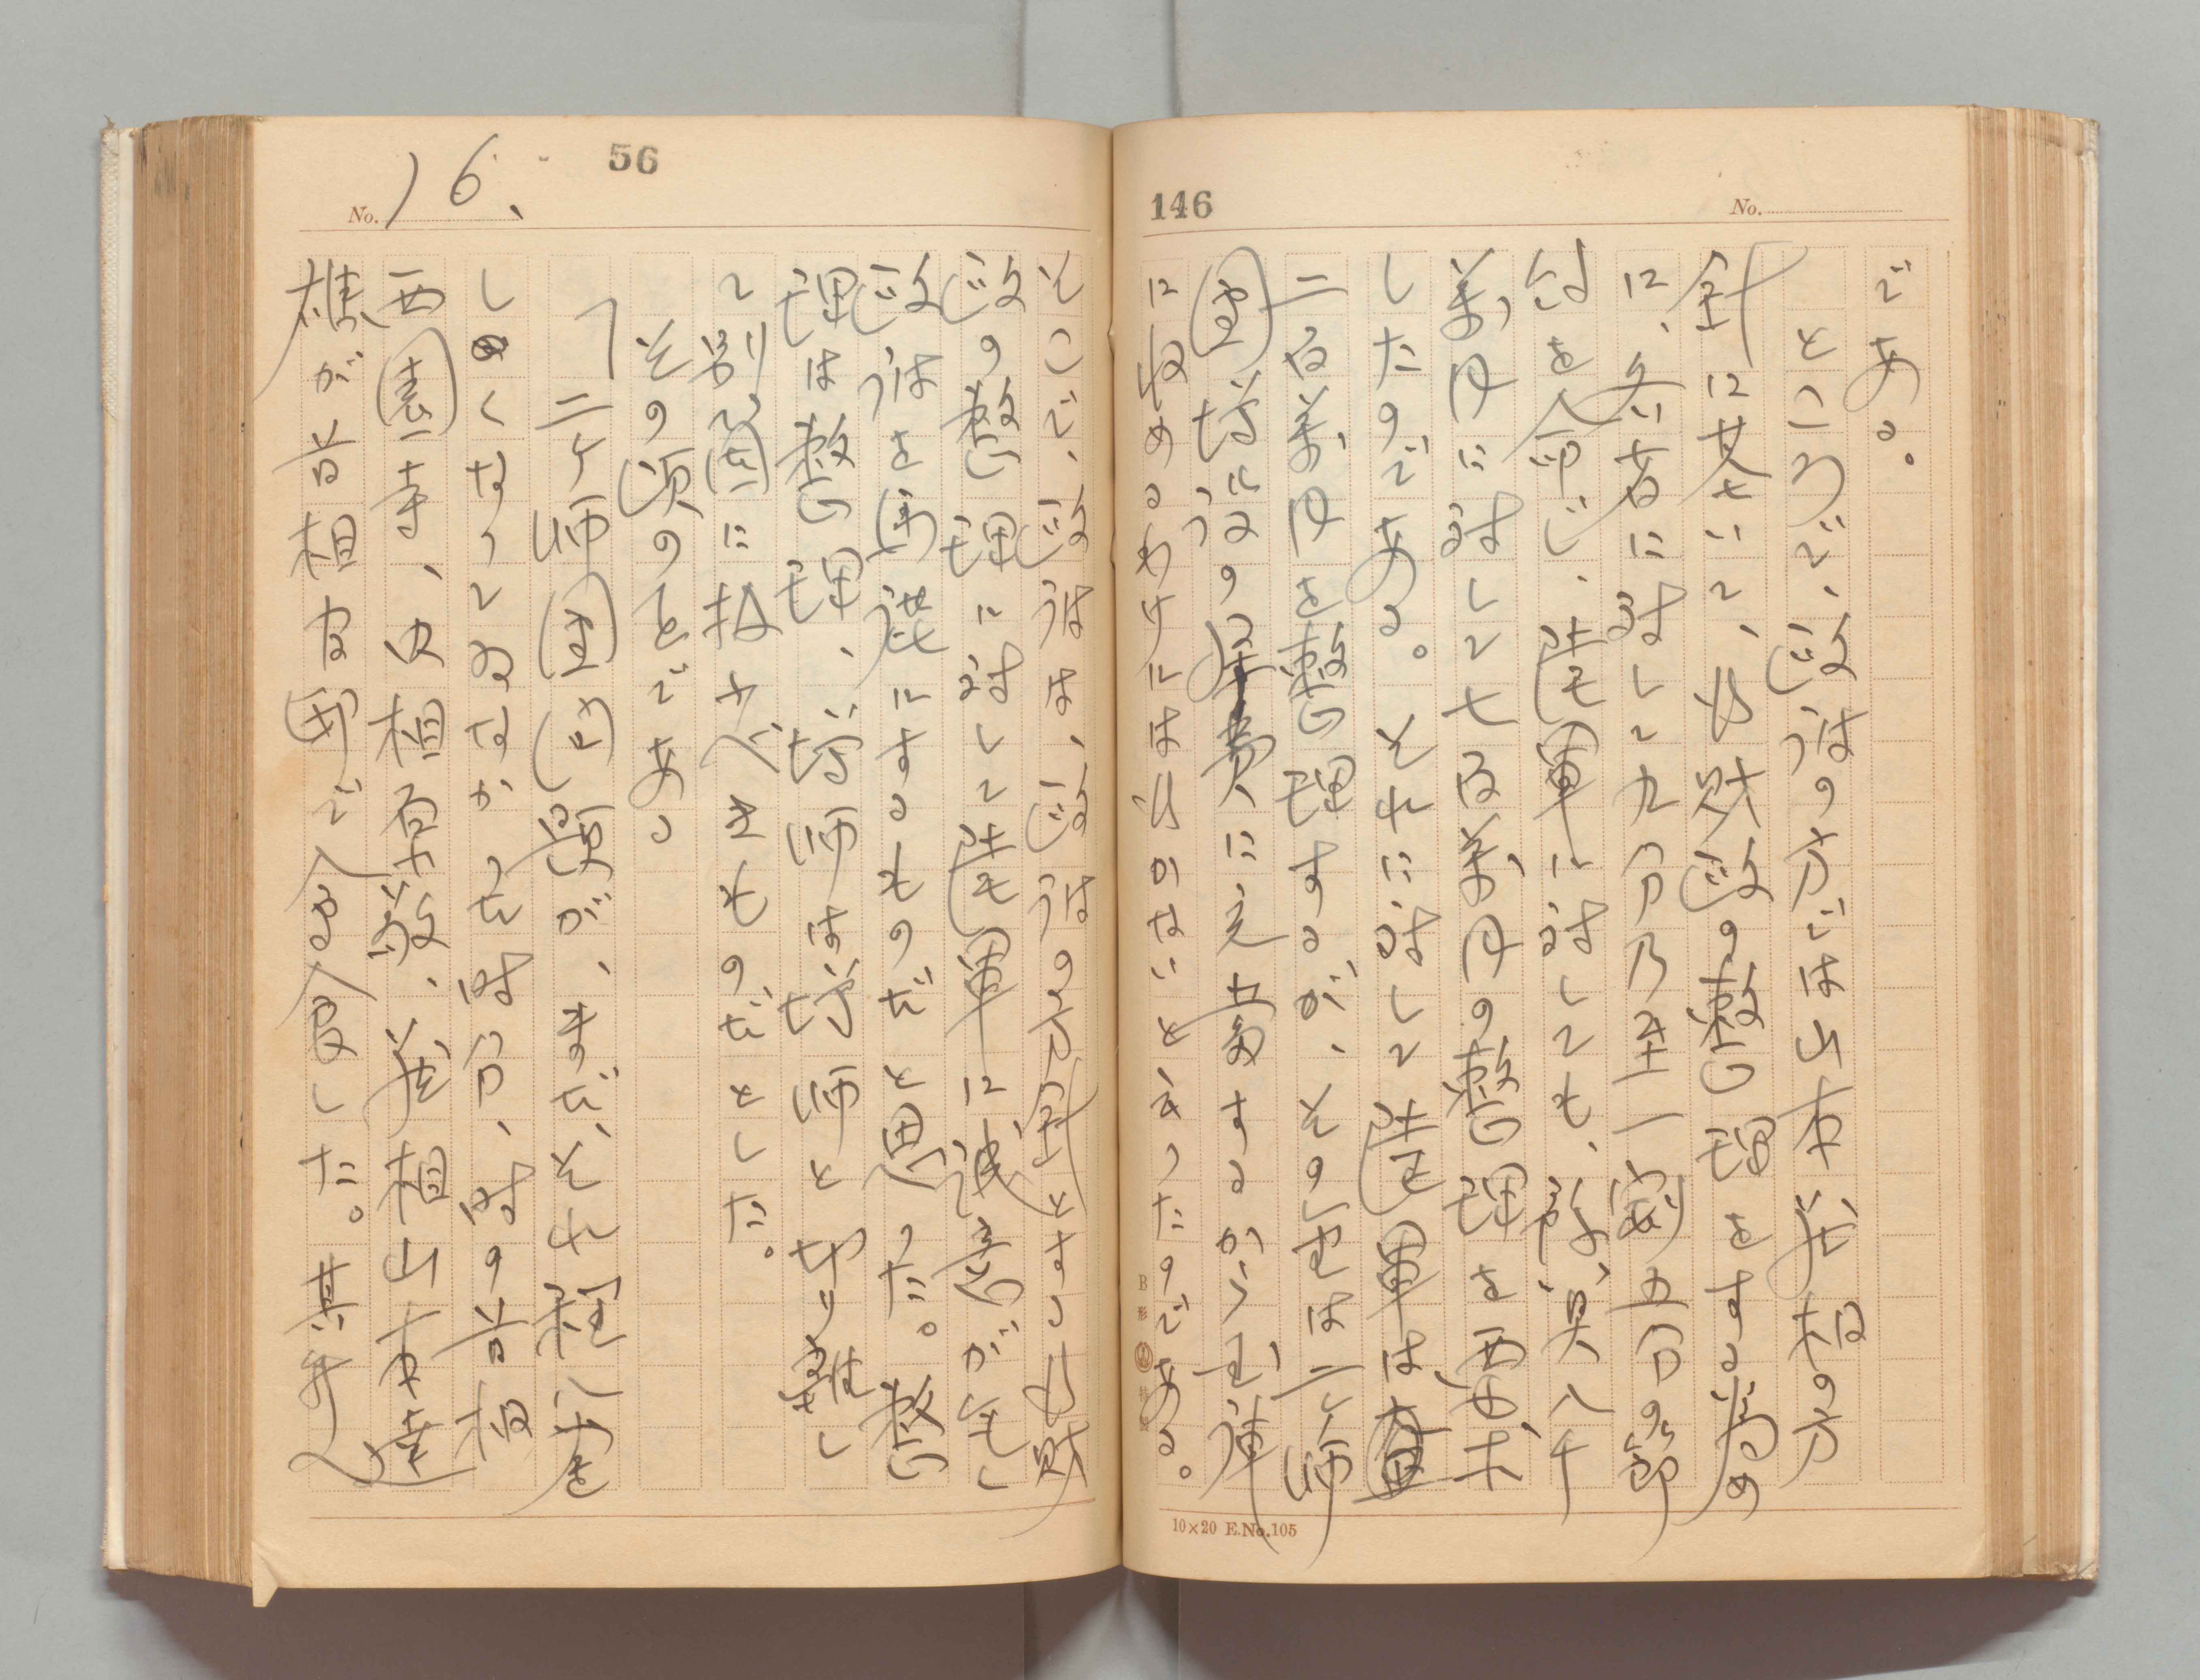 146
No.
である。
ところで、政府の方では山本蔵相の方
針に基いて、行財政の整理をする為め
に、各省に対して九分乃至一割五分の節
約を命じ、陸軍に対しても、八千
萬円に対して七百萬円の整理を要求
したのである。それに対して陸軍は
二百萬円を整理するが、その金は二ヶ師
団増設の経費に充当するから国庫
に収めるわけには行かないと云ったのである。
10×20 E.No.105
56
No. 16、
そこで、政府は、政府の方針とする行財
政の整理に対して陸軍に誠意がないし
政府を馬鹿にするものだと思った。整
理は整理、増師は増師と切り離し
て別個に扱ふべきものだとした。
その頃のことである
「二ヶ師団問題が、まだ、それ程八釜
しくなってゐなかった時分、時の首相
西園寺、内相原敬、蔵相山本達
雄が首相官邸で会見した。其時